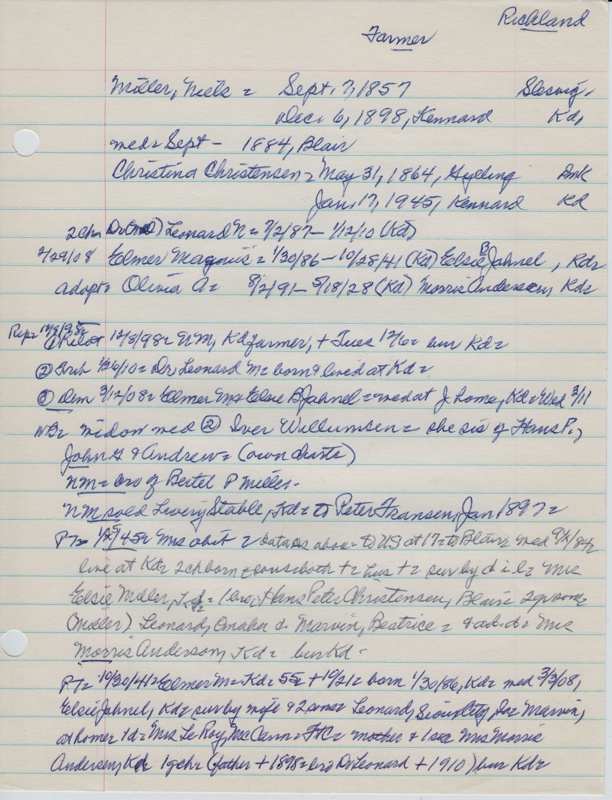 Richland
Farmer
Miller, Niels = Sept. 7, 1857 Sleswig,
Dec. 6, 1898, Kennard Kd,
med = Sept - 1884, Blair
Christina Christensen = May 31, 1864, Gylling Dmk
Jan. 17, 1945, Kennard Kd
2 chn Dr Leonard N = 7/2/87 - 1/12/10 (Kd)
2/29/08 Elmer Magnus = 1/30/86 - 10/28/41 (Kd) Elsie B Jahnel, Kd=
adopt = Olivia A = 8/2/91 - 5/18/28 (Kd) Morris Andersen, Kd=
① Pilot 12/8/98 = NM, Kd farmer, + Tues 12/6 = bur Kd =
② Trib 1/26/10 = Dr Leonard M = born & lived at Kd =
③ Dem 3/12/08 = Elmer M = Elsie B Jahnel = wed at J. home, Kd = Wed 3/11
NB = widow med ② Iver Willumsen = she sis of Hans P.,
John G & Andrew = (own charts)
NM = bro of Bertel P Miller -
NM sold Livery Stable, Kd = to Peter Fransen, Jan 1897 =
PT = 1/25/45 = Mrs obit = data as above = to US at 17 = to Blair = wed 9/ /84 =
live at Kd = 2 ch born = sons both + = hus + = sur by d i l = Mrs
Elsie Miller, Kd = 1 bro, Hans Peter Christensen, Blair = 2 gr sons
(Miller) Leonard, Omaha & Marvin, Beatrice = & ad. d = Mrs
Morris Anderson, Kd = bur Kd -
PT = 10/30/41 = Elmer M = Kd = 55 = + 10/21 = born 1/30/86, Kd = med 3/3/08,
Elsie Jahnel, Kd = sur by wife & 2 sons = Leonard, Sioux City, Ia = Marvin,
at home = 1 d = Mrs Le Roy McCann = FtC = mother & 1 sis = Mrs Morris
Andersen, Kd 1 gch = (father + 1898 = bro Dr Leonard + 1910) bur Kd =